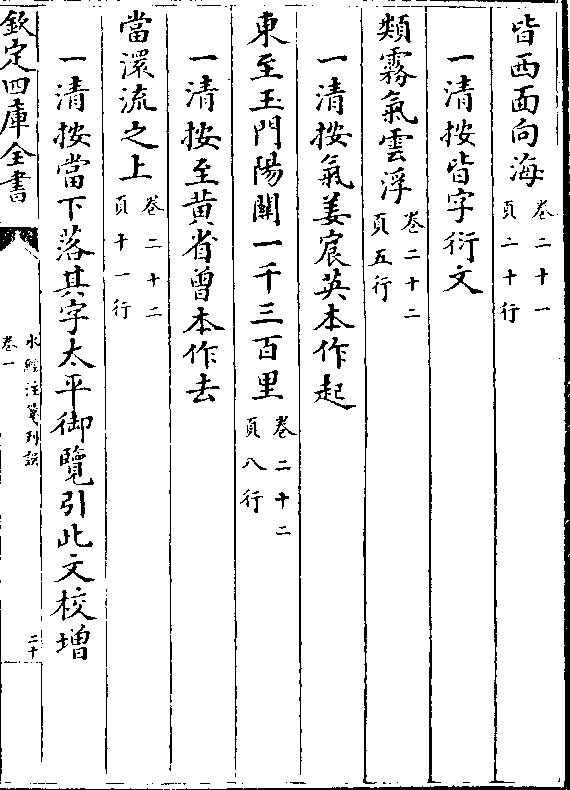 皆西面向海卷二十一頁二十行
一清按皆字衍文
類霧氣雲浮卷二十二頁五行
一清按氣姜宸英本作起
東至玉門陽關一千三百里卷二十二頁八行
一清按至黄省曾本作去
當澴流之上卷二十二頁十一行
一清按當下落其字太平御覽引此文校增
欽定四庫全書
水經注箋刋誤
卷一
二十